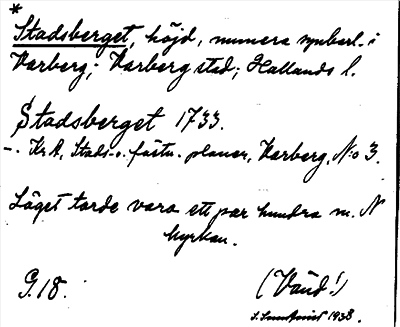 *
Stadsberget, höjd, numera synbarl. i
Varberg; Varberg stad; Hallands l.
Stadsberget 1733.
-. Kr A, Stads- o. fästn. planer, Varberg, N:o 3.
Läget torde vara ett par hundra m. N
kyrkan.
G. 18. (Vänd!)
S. 1938.